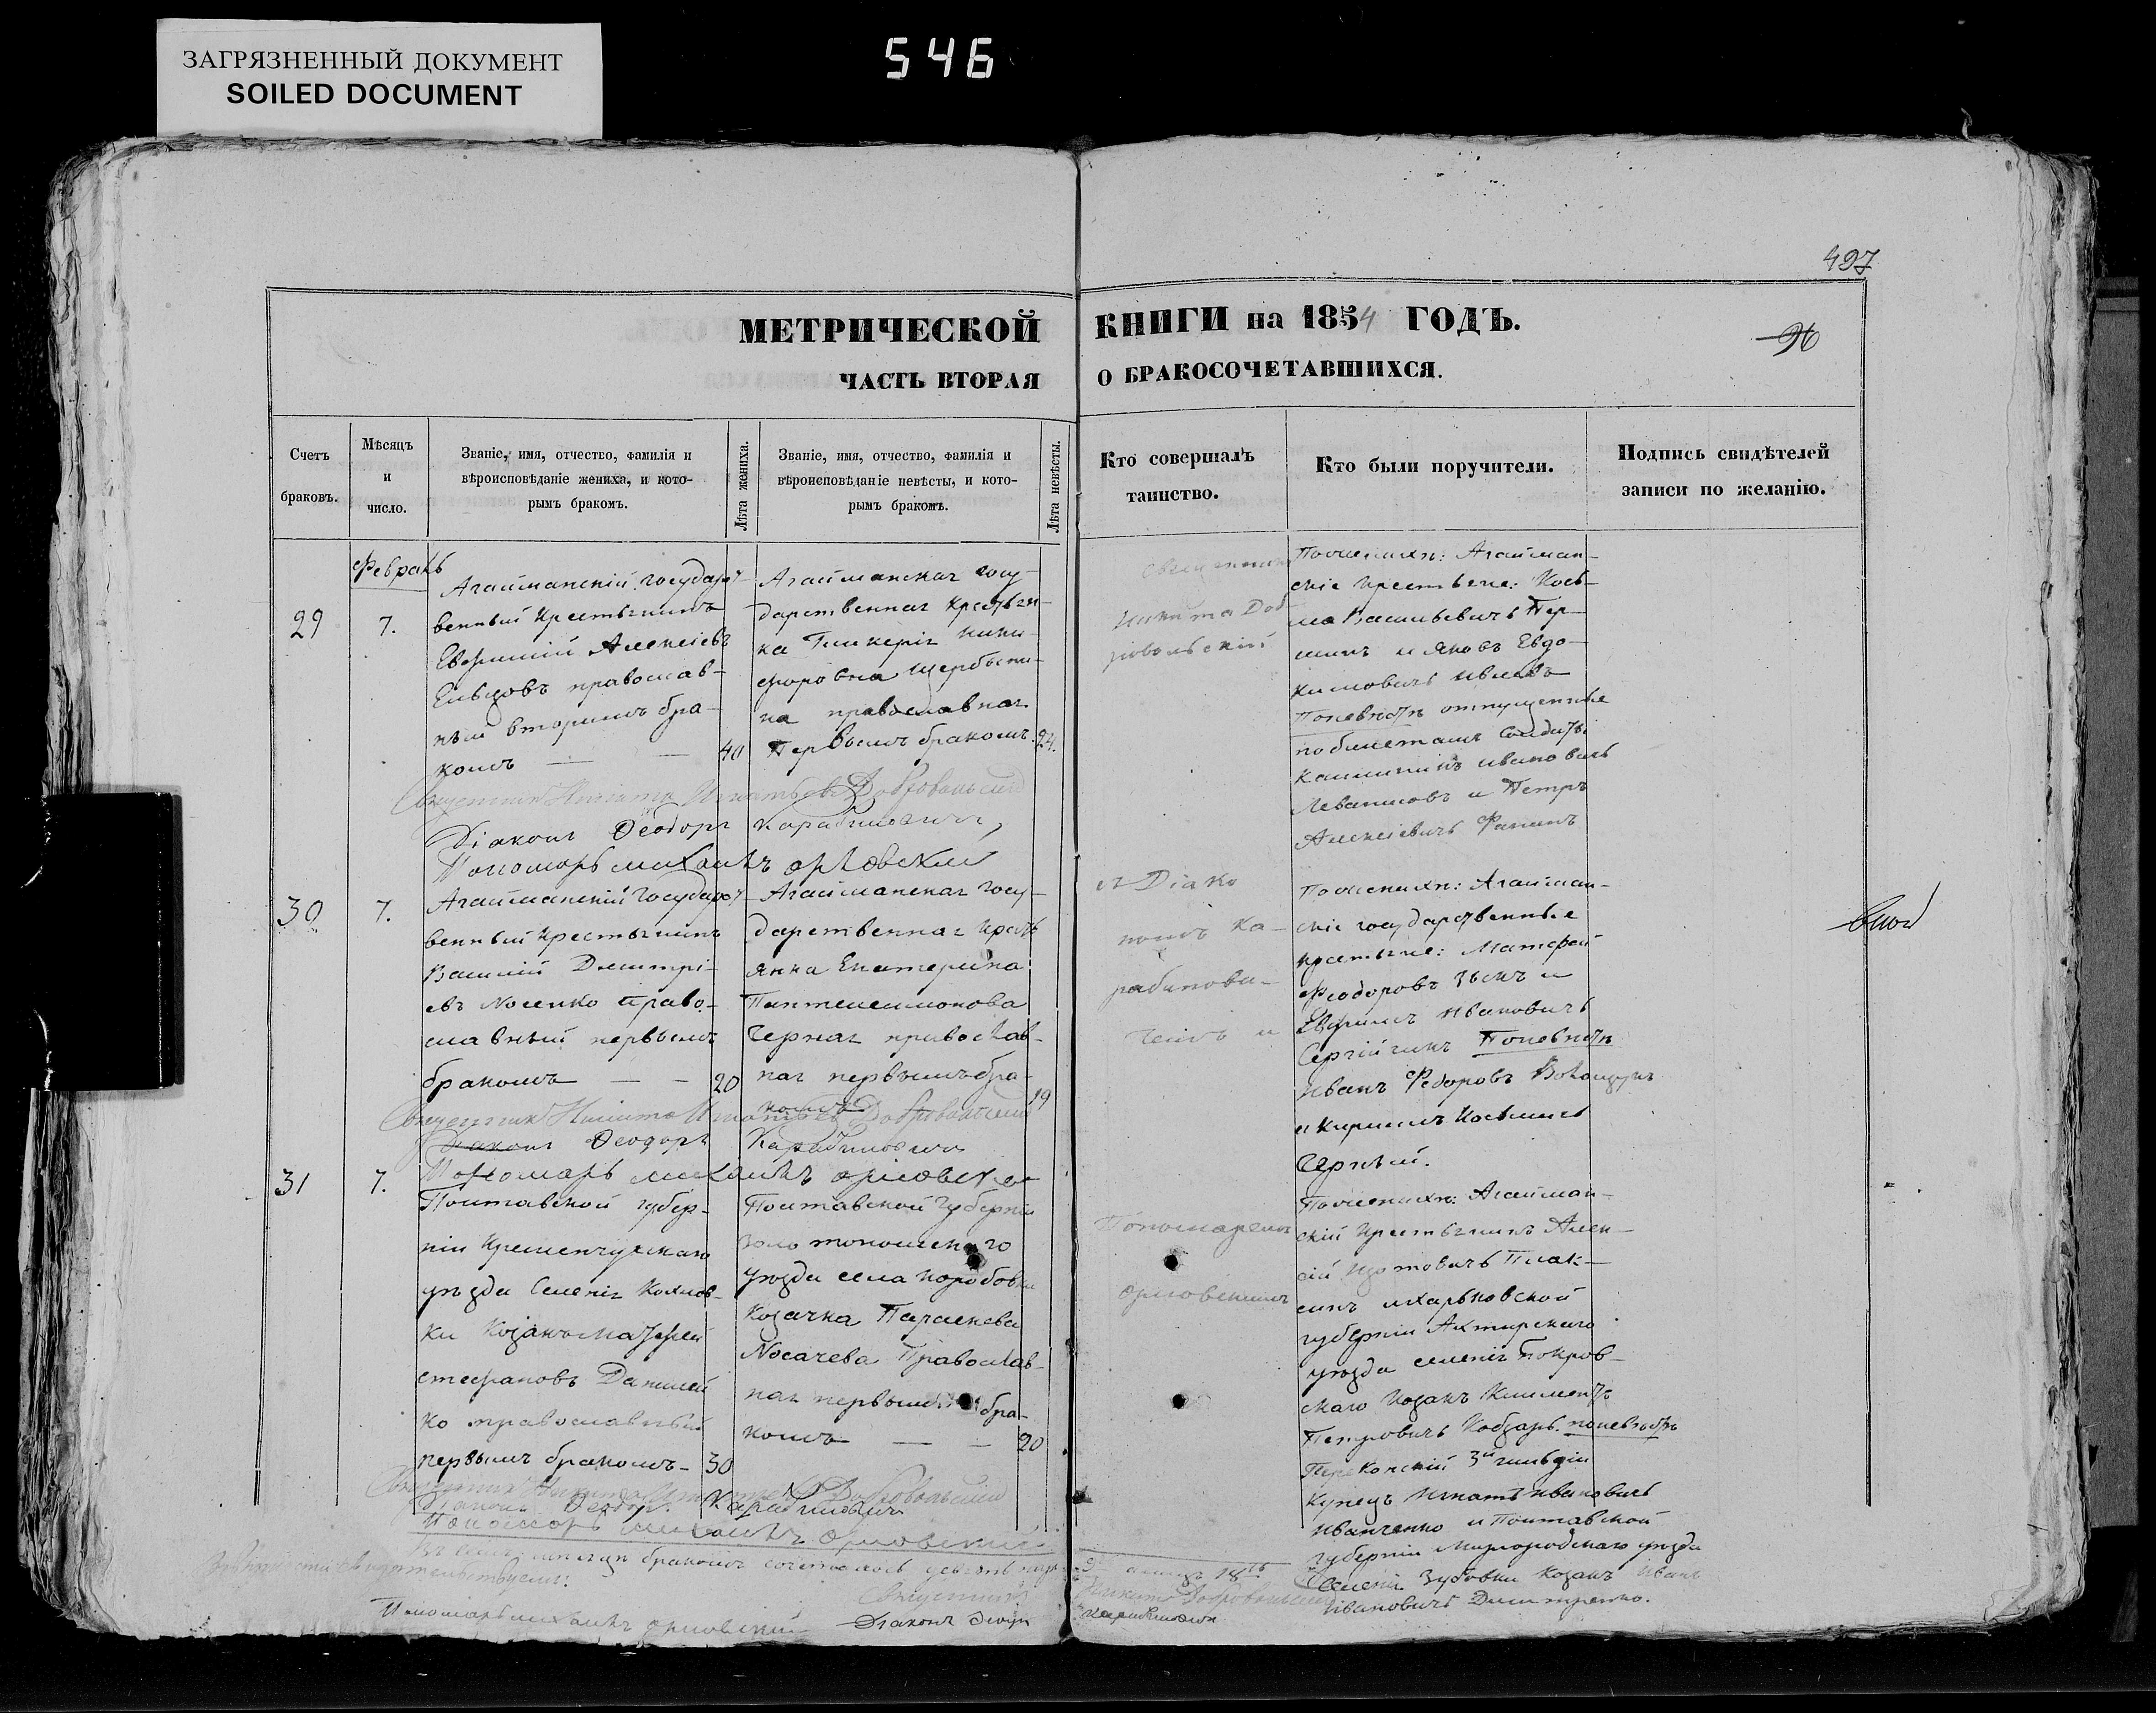 ЗАГРЯЗНЕННЫЙ ДОКУМЕНТ
SOILED DOCUMENT
546
497
МЕТРИЧЕСКОЙ КНИГИ на 1854 ГОДЪ.
96
ЧАСТЬ ВТОРАЯ О БРАКОСОЧЕТАВШИХСЯ.
Счетъ
браковъ.
Мѣсяцъ
и
число.
Званіе, имя, отчество, фамилія и
вѣроисповѣданіе жениха, и кото-
рымъ бракомъ.
Лѣта жениха.
Званіе, имя, отчество, фамилія и
вѣроисповѣданіе невѣсты, и кото-
рымъ бракомъ.
Лѣта невѣсты.
Кто совершалъ
таинство.
Кто были поручители.
Подпись свидѣтелей
записи по желанію.
Февраль
29
7.
Агайманскій государст-
венный крестьянинъ
Евфимій Алексіевъ
Ельцовъ православ-
ный вторымъ бра-
комъ
40
Агайманская госу-
дарственная крестьян-
ка Гликерія Ники-
форовна Щербини-
на православная
Первымъ бракомъ
24.
Священникъ
Никита Доб-
ровольскій
По женихѣ: Агайман-
скіе крестьяне: Кось-
ма Васильевичъ Пер-
шинъ и Яковъ Евдо-
кимовичъ Ивлевъ
По невѣстѣ отпущенные
по билетамъ солдаты
Каллиникъ Ивановичъ
Левашовъ и Петръ
Алексіевичъ Фанинъ
Священникъ Никита Игнатьевъ Добровольскій
Діаконъ Ѳеодоръ Карабиновичъ,
Пономарь Михаилъ Орловскій
30
7.
Агайманскій государст-
венный крестьянинъ
Василій Димитрі-
евъ Носенко право-
славный первымъ
бракомъ
20
Агайманская госу-
дарственная кресть
янка Екатерина
Пантелеимонова
Черная православ-
ная первымъ бра-
комъ
19
съ Діако
номъ Ка-
рабинови-
чемъ и
По женихѣ: Агайман-
скіе государственные
крестьяне: Матфей
Феодоровъ Зыкъ и
Евфимъ Ивановичъ
По невѣстѣ
Иванъ Федоровъ
и Кириллъ Косьминъ
Черный.
Священникъ Никита Игнатьевъ Добровольскій
Діаконъ Ѳеодоръ Карабиновичъ
Пономарь Михаилъ Орловскій
31
7.
Полтавской губер-
ніи Кременчугскаго
уѣзда селенія
ки козакъ Матфей
Стефановъ Данилей
ко православный
первымъ бракомъ
30
Полтавской губерніи
Золотоношскаго
уѣзда села Коробовки
козачка Параскева
Носачева православ-
ная первымъ бра-
комъ
20
Пономаремъ
Орловскимъ
По женихѣ: Агайман-
скій крестьянинъ Алек-
сій Изотовичъ Плак-
синъ и Харьковской
губерніи Ахтирскаго
уѣзда селенія Покров-
скаго козакъ Климентъ
Петровичъ Кобзарь. по невѣстѣ
Перекопскій 3й гильдіи
купецъ Игнатъ Ивановичъ
Иванченко и Полтавской
губерніи Миргородскаго уѣзда
селенія Зубовки козакъ Иванъ
Ивановичъ Димитренко.
Священникъ Никита Игнатьевъ Добровольскій
Діаконъ Ѳеодоръ Карабиновичъ
Пономарь Михаилъ Орловскій
Въ семъ мѣсяцѣ бракомъ сочеталось девять паръ
9
18
свидѣтельствуемъ:
Священникъ Никита Добровольскій
Діаконъ Ѳеодоръ Карабиновичъ
Пономарь Михаилъ Орловскій